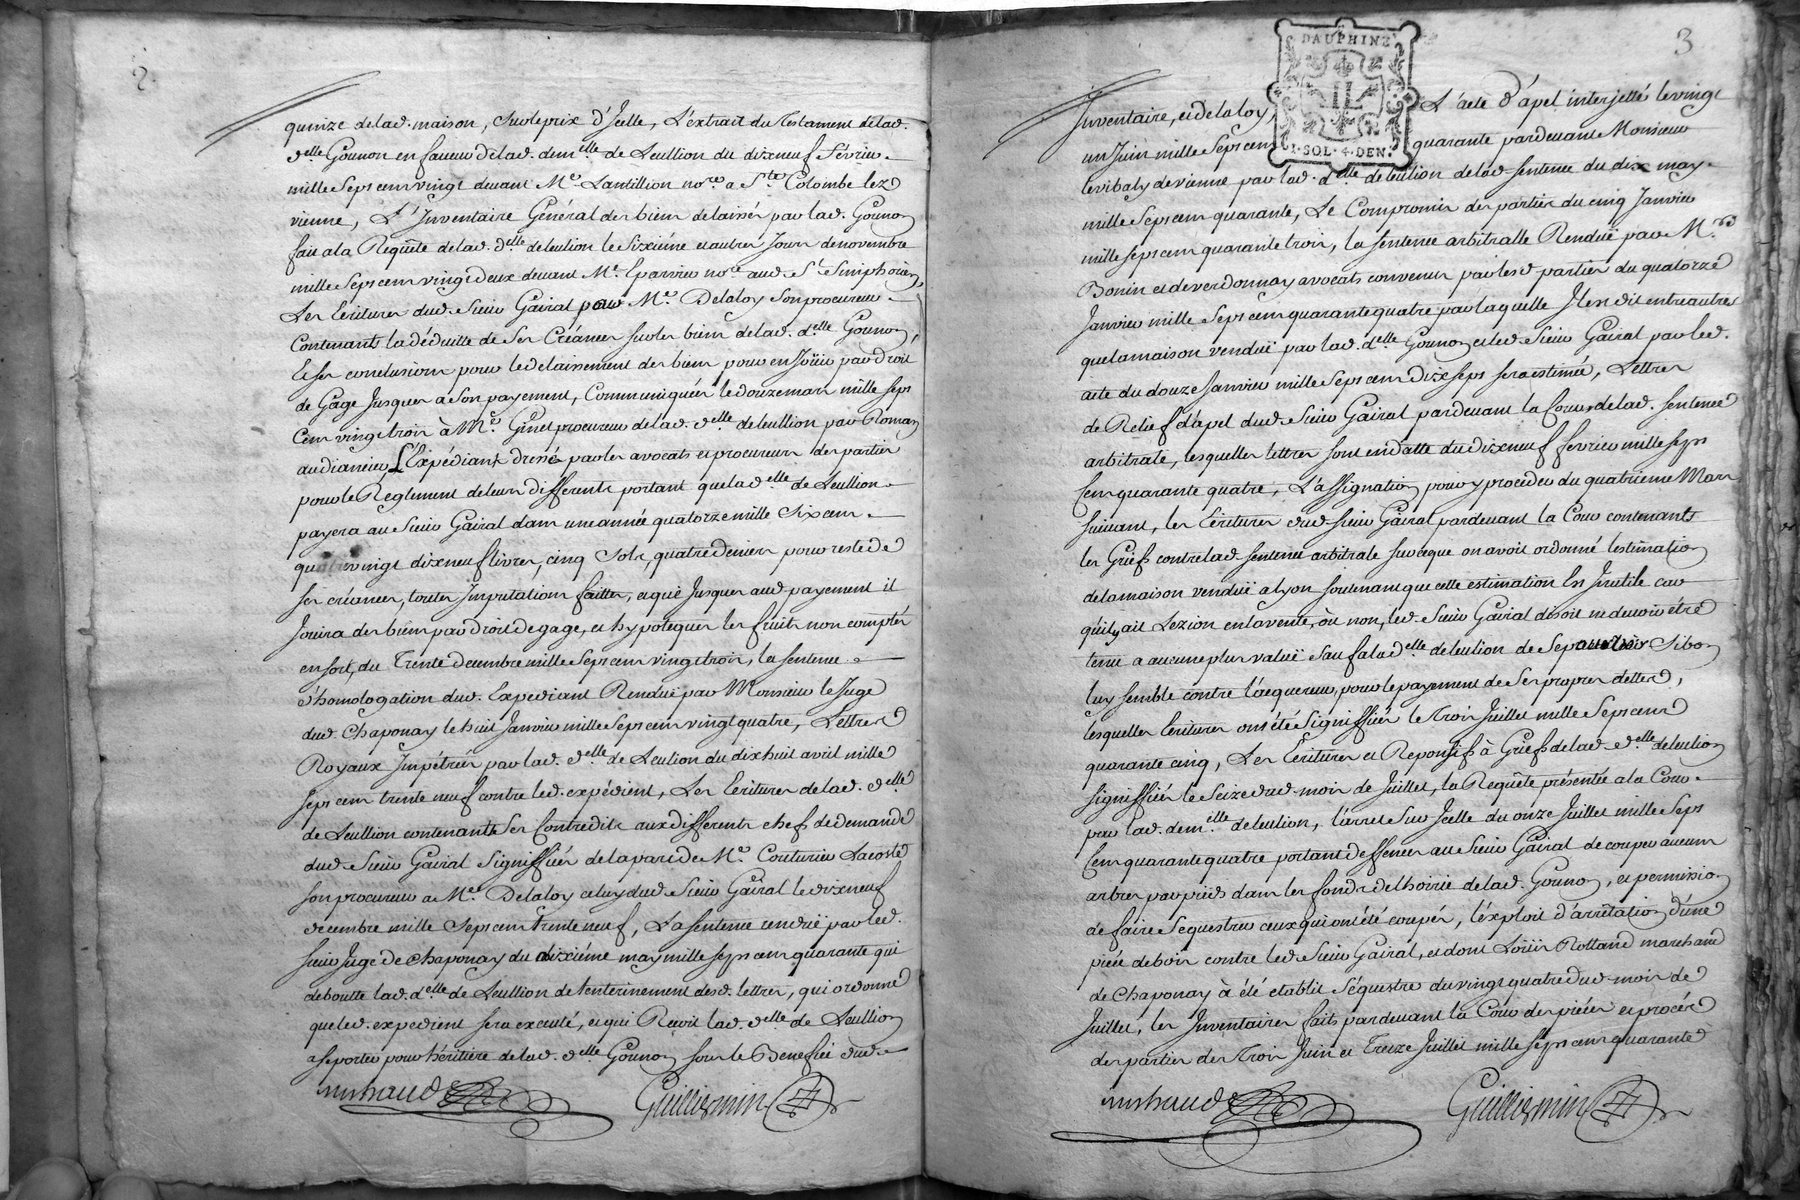 2
quinze delad. maison, sur le prix d'Jcelle, L'extrait du testament delad.
d.elle Gounon en faveur delad. dem.elle de Leullion du dixneuf Février
mille Sept cent vingt devant M.e Lantillion no.re a S.te Colombe lez
vienne, L'Jnventaire Général des biens delaissés par lad. Gounon
fait a la Requête delad. d.elle de leulion le Sixiéme et autres Jours de novembre
mille Sept cent vingt deux devant M.e Eparvier no.re aud. S.t Simphorien,
Les Ecritures dud. Sieur Gairal pour M.e Delaloy Son procureur
Contenants la déduitte de Ses Créances sur les biens delad. d.elle Gounon,
Et Ses conclusions pour le delaissement des biens pour en Joüir par droit
de Gage Jusques a Son payement, Communiquées le douze mars mille sept
Cent vingt trois à M.e Ginet procureur delad. d.elle de leullion par Roman
audiancier, L'Expédiant dressé par les avocats et procureurs des parties
pour le Reglement de leurs differents portant que lad. d.elle de Leullion
payera au Sieur Gairal dans une année quatorze mille Six cent
quatre vingt dix neuf livres, cinq Sols, quatre deniers pour reste de
Ses créances, toutes Jmputations faittes, et que Jusques aud. payement il
Joüira des biens par droit de gage, et hypoteque les fruits non comptés
en sort, du Trente decembre mille Sept cent vingt trois, la sentence
d'homologation dud. Expediant Rendüe par Monsieur le Juge
dud. Chaponay le huit Janvier mille Sept cent vingt quatre, Lettres
Royaux Jmpétrées par lad. d.elle de Leulion du dix huit avril mille
sept cent trente neuf contre led. expédient, Les Ecritures delad. d.elle
de Leullion contenants Ses Contredits aux différents chefs de demande
dud. Sieur Gairal Signiffiées de la part de M.e Couturier Lacoste
son procureur a M.e Delaloy celuy dud. Sieur Gairal le dixneuf
decembre mille Sept cent trente neuf, La sentence rendüe par led.
sieur Juge de Chaponay du dixiéme may mille sept cent quarante qui
deboutte lad. d.elle de Leullion de l'enterinement desd. lettres, qui ordonne
que led. expedient sera executé, et qui Reçoit lad. d.elle de Leullion
a se porter pour héritière delad. d.elle Gounon sous le Benefice dud.
michaud Guillermin
3
DAUPHINE
1·SOL·4·DEN.
Jnventaire, et de la loy, L'acte d'apel interjetté le vingt
un Juin mille Sept cent quarante pardevant Monsieur
le vibaly de vienne par lad. d.elle de leulion delad. sentence du dix may
mille Sept cent quarante, Le Compromis des parties du cinq Janvier
mille sept cent quarante trois, la sentence arbitralle Rendüe par M.rs
Bonin et de verdonnay avocats convenus par lesd. parties du quatorze
Janvier mille Sept cent quarante quatre par laquelle Jl est dit entre autres
que la maison vendüe par lad. d.elle Gounon et led. Sieur Gairal par led.
acte du douze Janvier mille Sept cent dix sept sera estimée, Lettres
de Relief d'apel dud. Sieur Gairal pardevant la Cour delad. sentence
arbitrale, lesquelles lettres sont en datte du dixneuf fevrier mille sept
Cent quarante quatre, L'assignation pour y proceder du quatrieme Mars
suivant, les Ecritures dud. sieur Gairal pardevant la Cour contenants
les Griefs contre lad. sentence arbitrale sur ce que on avoit ordonné l'estimation
de la maison vendüe a lyon soutenant que cette estimation Est Jnutile car
qu'il y ait Lezion en la vente, ou non, led. Sieur Gairal disoit ne devoir étré
tenu a aucune plus valüe Sauf a la d.elle de leulion de Se pourvoir Si bon
luy semble contre l'acquereur, pour le payement de Ses propres dettes,
lesquelles Ecritures ont été Signiffiées le Trois Juillet mille Sept cent
quarante cinq, Les Ecritures et Reponsifs à Griefs delad. d.elle de leulion
signiffiés le Seize dud. mois de Juillet, la Requête présentée a la Cour
par lad. dem.elle de leulion, l'arret Sur Jcelle du onze Juillet mille Sept
Cent quarante quatre portant deffences au Sieur Gairal de couper aucuns
arbres par pieds dans les fonds de l'hoirie delad. Gounon, et permission
de faire Sequestrer ceux qui ont été coupés, l'éxploit d'arrêtation d'une
piéce de bois contre led. Sieur Gairal, et dont Loüis Rolland marchand
de Chaponay à été etablit Séquestre du vingt quatre dud. mois de
Juillet, les Jnventaires faits pardevant la Cour des piéces et procés
des parties des Trois Juin et Treize Juillet mille sept cent quarante
michaud Guillermin